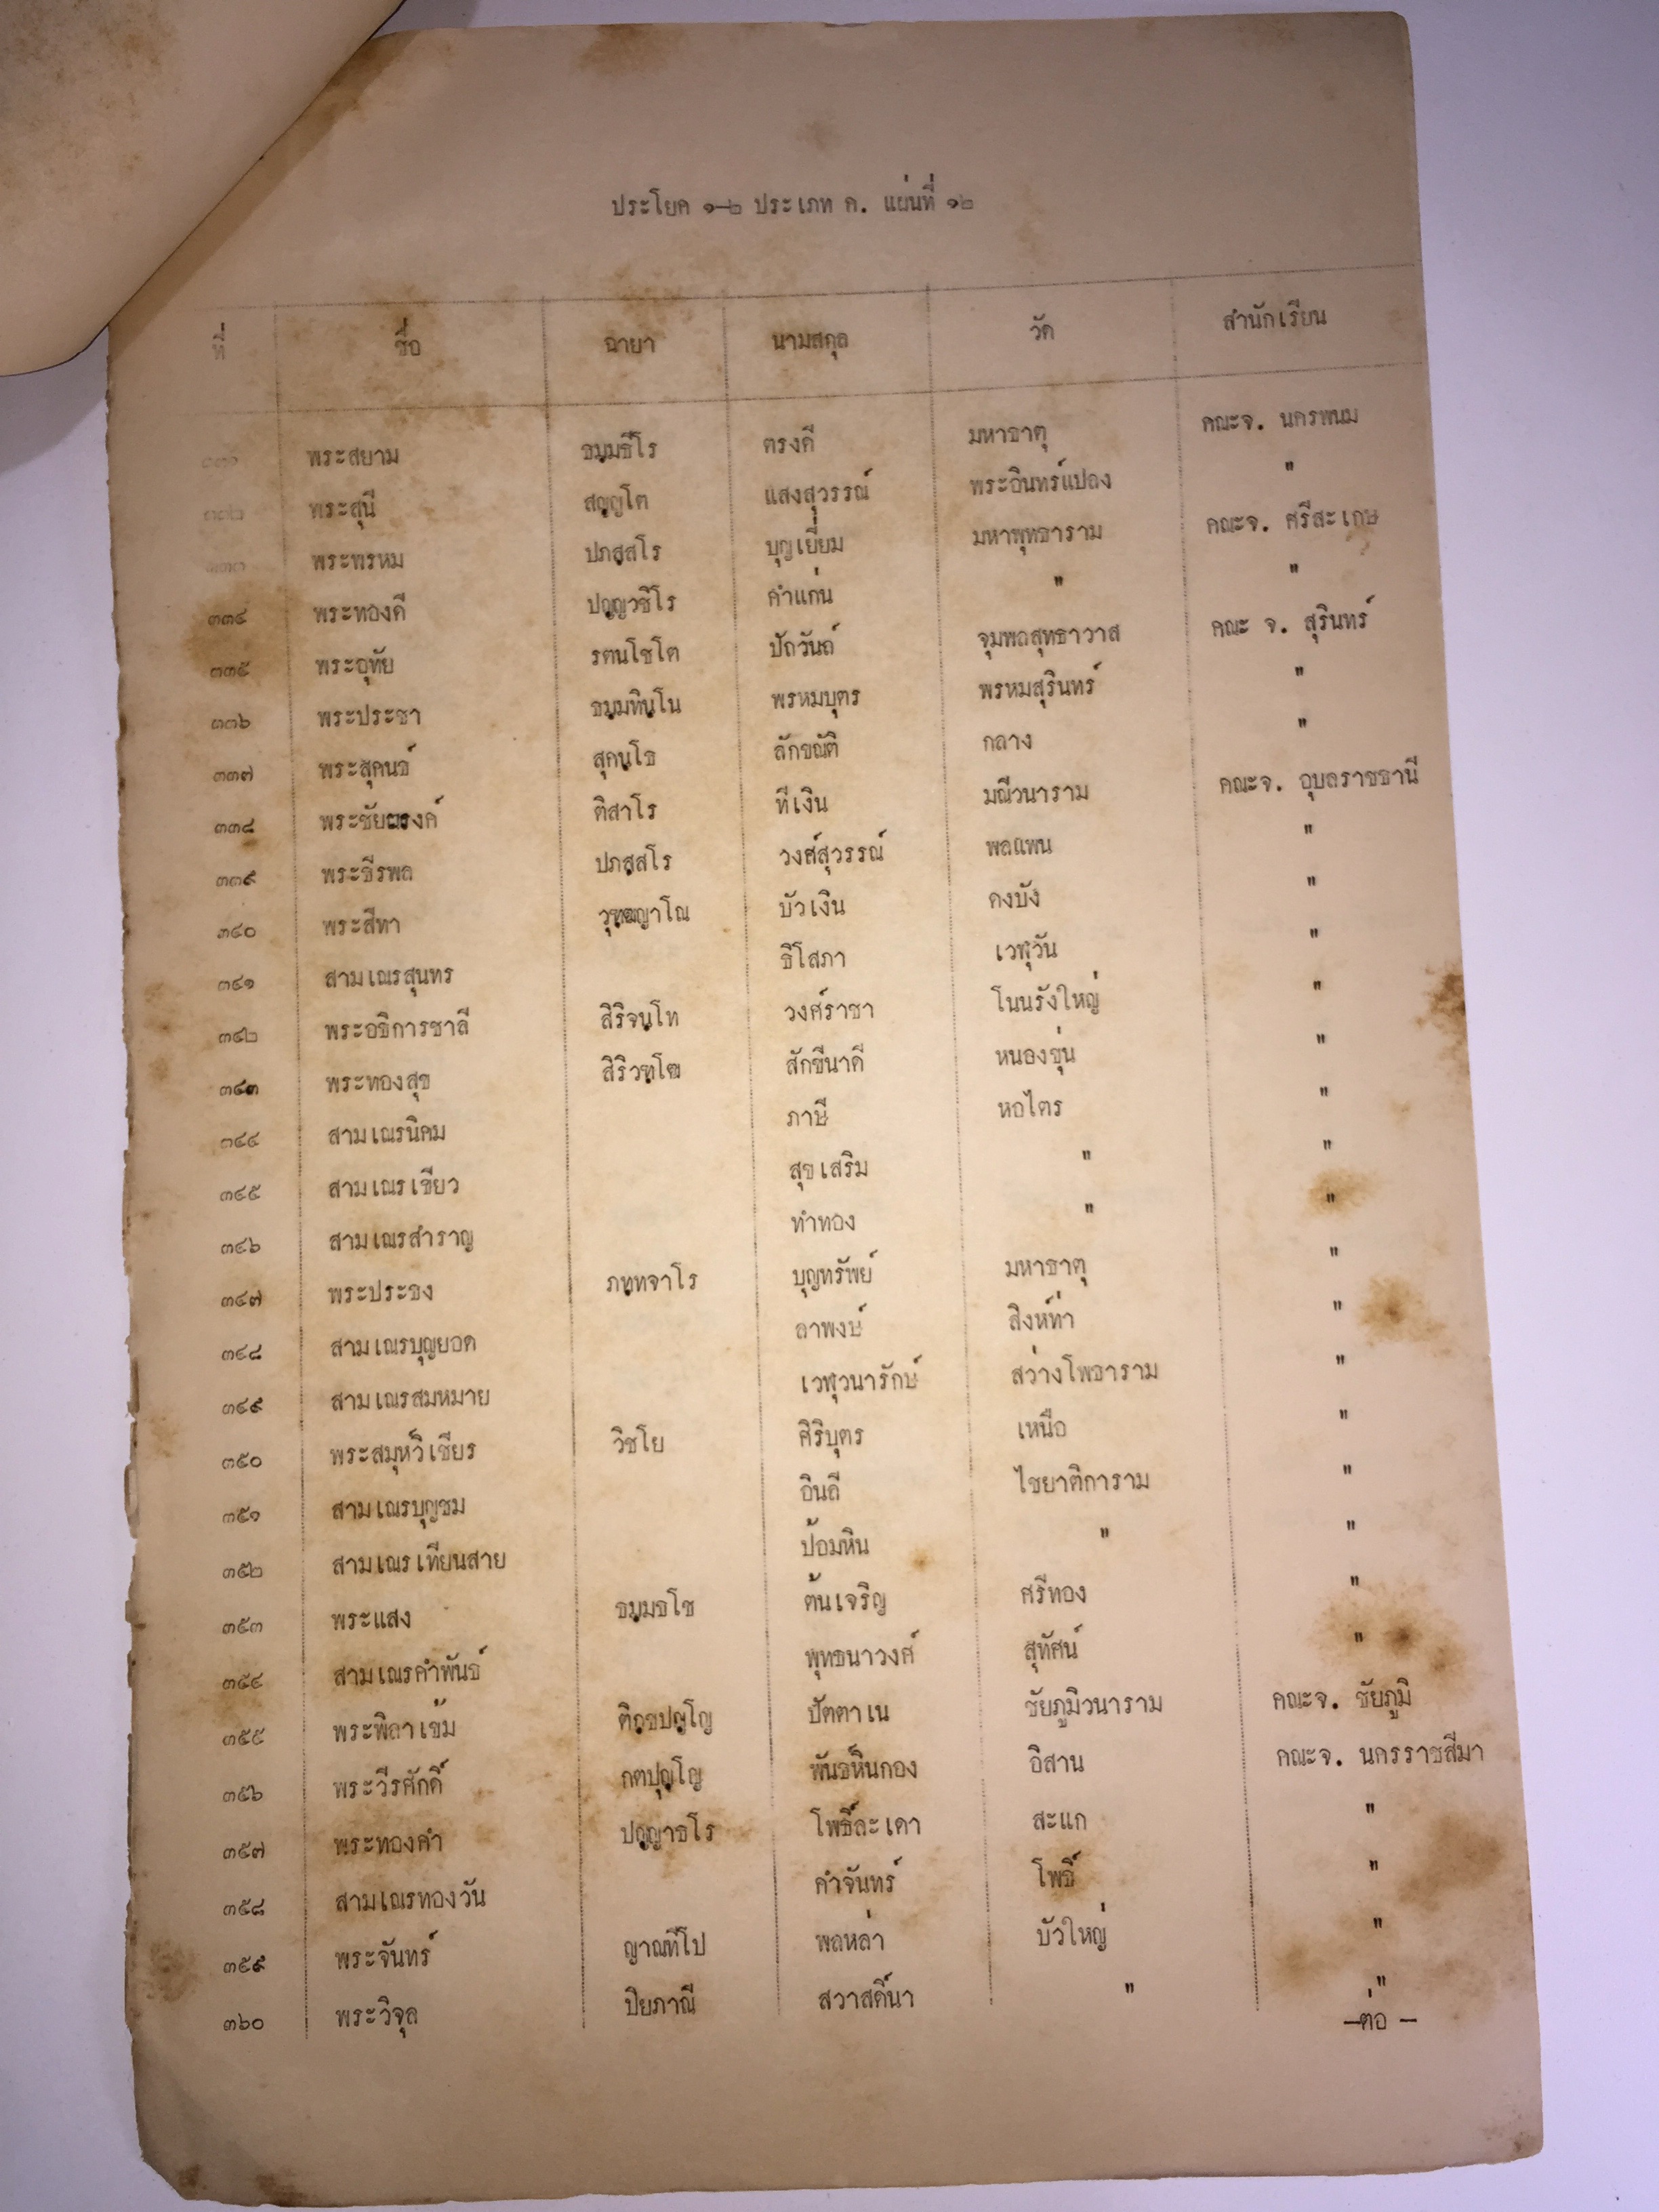 ประโยค ๑-๒ ประเภท ค. แผ่นที่ ๑๒
ที่ ชื่อ ฉายา นามสกุล วัด สำนักเรียน
๓๓๑ พระสยาม ธมฺมธีโร ตรงดี มหาธาตุ คณะจ. นครพนม
๓๓๒ พระสุนี สญฺญโต แสงสุวรรณ์ พระอินทร์แปลง "
๓๓๓ พระพรหม ปภสฺสโร บุญเยี่ยม มหาพุทธาราม คณะจ. ศรีสะเกษ
๓๓๔ พระทองดี ปญฺญวชิโร คำแก่น " "
๓๓๕ พระอุทัย รตนโชโต ปัถวันถ์ จุมพลสุทธาวาส คณะ จ. สุรินทร์
๓๓๖ พระประชา ธมฺมทินฺโน พรหมบุตร พรหมสุรินทร์ "
๓๓๗ พระสุคนธ์ สุคนฺโธ ลักขณัติ กลาง "
๓๓๘ ติสาโร ทีเงิน มณีวนาราม คณะจ. อุบลราชธานี
๓๓๙ พระธีรพล ปภสฺสโร วงศ์สุวรรณ์ พลแพน "
๓๔๐ พระสีทา บัวเงิน ดงบัง "
๓๔๑ สามเณรสุนทร ธิโสภา เวฬุวัน "
๓๔๒ พระอธิการชาลี สิริจนฺโท วงศ์ราชา โนนรังใหญ่ "
๓๔๓ พระทองสุข สักขีนาดี หนองขุ่น "
๓๔๔ สามเณรนิคม ภาษี หอไตร "
๓๔๕ สามเณรเขียว สุขเสริม " "
๓๔๖ สามเณรสำราญ ทำทอง " "
๓๔๗ พระประธง ภทฺทจาโร บุญทรัพย์ มหาธาตุ "
๓๔๘ สามเณรบุญยอด ลาพงษ์ สิงห์ท่า "
๓๔๙ สามเณรสมหมาย เวฬุวนารักษ์ สว่างโพธาราม "
๓๕๐ พระสมุห์วิเชียร วิชโย ศิริบุตร เหนือ "
๓๕๑ สามเณรบุญชม อินถี ไชยาติการาม "
๓๕๒ สามเณรเทียนสาย ป้อมหิน " "
๓๕๓ พระแสง ธมฺมธโช ต้นเจริญ ศรีทอง "
๓๕๔ สามเณรคำพันธ์ พุทธนาวงศ์ สุทัศน์ "
๓๕๕ พระพิลาเข้ม ติกฺขปญฺโญ ปัตตาเน ชัยภูมิวนาราม คณะจ. ชัยภูมิ
๓๕๖ พระวีรศักดิ์ กตปุญฺโญ พันธ์หินกอง อิสาน คณะจ. นครราชสีมา
๓๕๗ พระทองคำ ปญฺญาธโร โพธิ์ละเดา สะแก "
๓๕๘ สามเณรทองวัน คำจันทร์ โพธิ์ "
๓๕๙ พระจันทร์ ญาณทีโป พลหล่า บัวใหญ่ "
๓๖๐ พระวิจุล ปิยภาณี สวาสดิ์นา " "
-ต่อ -